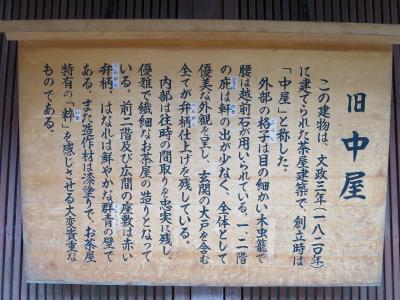 旧中屋
この建物は、文政三年(一八二〇年)
に建てられた茶屋建築で、創立時は
「中屋」と称した。
外部の格子は目の細かい木虫籠で
腰は越前石が用いられている。一・二階
の庇は軒の出が少なく、全体として
優美な外観を呈し、玄関の大戸を含む
全てが弁柄仕上げを残している。
内部は往時の間取りを忠実に残し、
優雅で繊細なお茶屋の造りとなって
いる。前二階及び広間の座敷は赤い
弁柄、はなれは鮮やかな群青の壁で
ある。また造作材は漆塗りで、お茶屋
特有の「粋」を感じさせる大変貴重な
ものである。